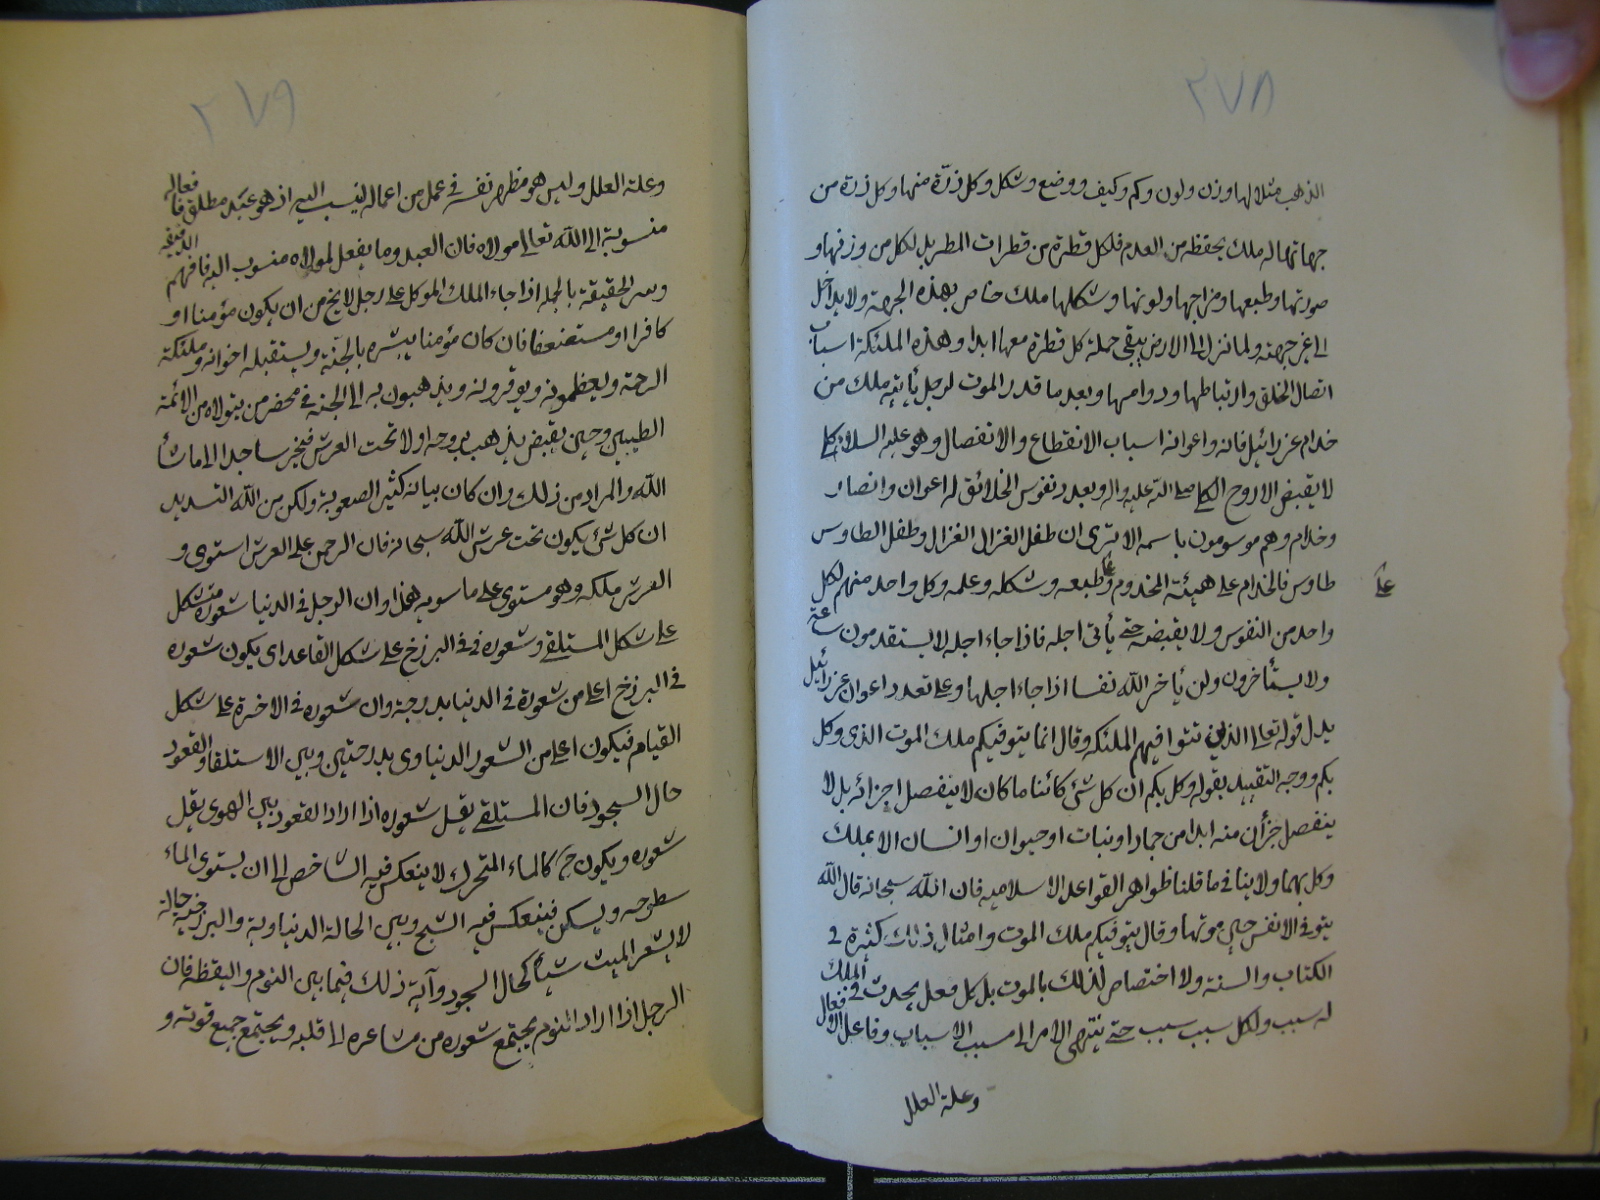 ٢٧٨
الذهب مثلا لها وزن ولون وكم وكيف ووضع وشكل وكل ذرّة منها وكل ذرة من
جهاتها له ملك يحفظه من العدم فلكل قطرة من قطرات المطر بل لكل من وزنها و
صورتها وطبعها ومزاجها ولونها وشكلها ملك خاص بهذه الجهة ولا يداخل
الى غير جهته ولما نزل الى الارض يبقى حملة كل قطرة معها ابدا وهذه الملئكة اسباب
اتصال الخلق وارتباطها ودوامها وبعد ما قدر الموت لرجل يأتيه ملك من
خدام عزرائيل فانه واعوانه اسباب الانقطاع والانفصال وهو عليه السلام
لا يقبض الا روح الكلى صلى الله عليه واله وبعدد نفوس الخلائق له اعوان وانصار
وخدام وهم موسومون باسمه الا ترى ان طفل الغزال الغزال وطفل الطاوس
طاوس فالخدام على هيئة المخدوم وطبعه وشكله وعلمه وكل واحد منهم لكل
واحد من النفوس ولا يقبض حتى يأتى اجله فاذا جاء اجله لا يستقدمون ساعة
ولا يستأخرون ولن يأخر الله نفسا اذا جاء اجلها وعلى تعدد اعوان عزرائيل
يدل قوله تعالى الذين تتوافيهم الملئكه وقال انما يتوفيكم ملك الموت الذى وكل
بكم ووجه التقييد بقوله وكل بكم ان كل شئ كائنا ما كان لا ينفصل اجزائه بل لا
ينفصل جزأن منه ابدا من جماد او نبات او حيوان او انسان الا بملك
وكل بهما ولا ينافى ما قلنا ظواهر القواعد الاسلاميه فان الله سبحانه قال الله
يتوفى الانفس حين موتها وقال يتوفيكم ملك الموت وامثال ذلك كثيرة فى
الكتاب والسنة ولا اختصاص لذلك بالموت بل كل فعل يحدث فى الملك
له سبب ولكل سبب سبب حتى ينتهى الامر الى مسبب الاسباب وفاعل الافعال
وعلة العلل
٢٧٩
وعلة العلل وليس هو مظهر نفسه فى عمل من اعماله لينسب اليه اذ هو عبد مطلق فافعاله
منسوبة الى الله تعالى مولاه فان العبد وما يفعل لمولاه منسوب اليه فافهم الدقيقه
وسر الحقيقة بالجمله اذا جاء الملك الموكل على رجل لا يخ من ان يكون مؤمنا او
كافرا او مستضعفا فان كان مؤمنا يبشره بالجنة ويستقبله اخوانه وملئكة
الرحمة ويعظمونه ويوقرونه ويذهبون به الى الجنه فى محضر من يتولاه من الائمة
الطيبين وحين يقبض يذهب بروحه اولا تحت العرش فيخر ساجدا الى ما شأ
الله والمراد من ذلك وان كان بيانه كثير الصعوبة ولكن من الله التسديد
ان كل شئ يكون تحت عرش الله سبحانه فان الرحمن على العرش استوى و
العرش ملكه وهو مستوى على ما سويه وان الرجل فى الدنيا شعوره متشكل
على شكل المستلقى وشعوره فى البرزخ على شكل القاعد اى يكون شعوره
فى البرزخ اعلى من شعوره فى الدنيا بدرجة وان شعوره فى الاخرة على شكل
القيام فيكون اعلى من الشعور الدنياوى بدرجتين وبين الاستلقاء والقعود
حال السجود فان المستلقى يقل شعوره اذا اراد القعود بين الهوى يقل
شعوره ويكون ح كالماء المتحرك لا ينعكس فيه الشاخص الى ان يستوى الماء
سطوحه ويسكن فينعكس فيه الشبح وبين الحالة الدنياوية والبرزخية حالة
لا يشعر الميت شيأ كحال السجود وآية ذلك فيما بين النوم واليقظه فان
الرجل اذا اراد النوم يجتمع شعوره من مشاعره الى قلبه ويجتمع جميع قوته و